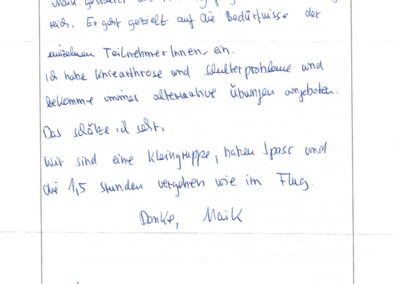 reich. Er geht gezielt auf die Bedürfnisse der
einzelnen TeilnehmerInnen ein.
ich habe Kniearthrose und Schulterprobleme und
bekomme immer alternative Übungen angeboten.
Das schätze ich sehr.
Wir sind eine Kleingruppe, haben Spass und
die 1,5 Stunden vergehen wie im Flug.
Danke, Maik